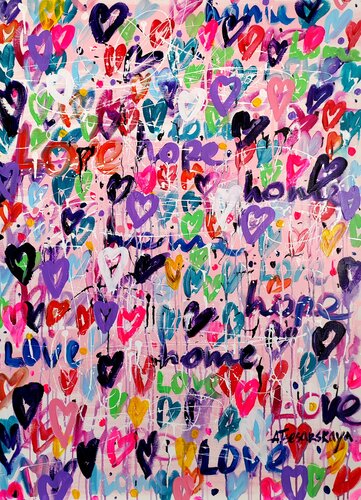 home
LOVE
LOVE hope
home
home
hope
LOVE home
LOVE
LOVE
LOVE